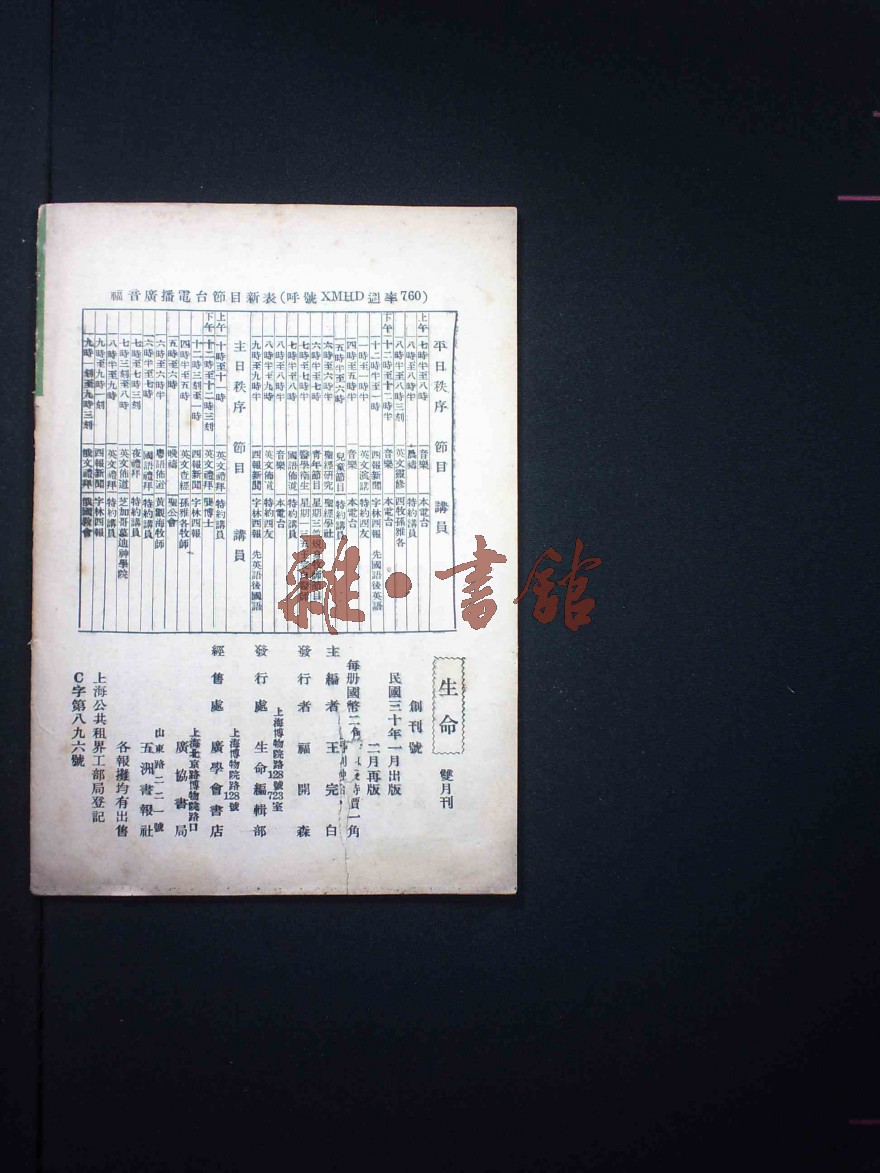 福音廣播電台節目新表(呼號XMHD週率760)
平日秩序 節目 講員
上午 七時半至八時 音樂 本電台
八時至八時半 晨禱 特約講員
八時半至八時三刻 英文靈修 西牧孫雅各
下午 十二時至十二時半 音樂 本電台
十二時半至一時 四報新聞 先國語後英語
一時至一時半 英文演說 特約四友
四時至五時半 音樂 本電台
五時半至六時 兒童節目 特約講員
六時至六時半 聖經研究 聖經學社
六時半至七時 青年節目 星期三
七時至七時半 醫學衛生 星期一三五
七時半至八時 國語佈道 特約講員
八時至八時半 音樂 本電台
八時半至九時 英文佈道 特約四友
九時至九時半 四報新聞 字林四報 先英語後國語
主日秩序 節目 講員
上午 十時至十一時 英文禮拜 特約講員
下午 十二時至十二時三刻 英文禮拜 龔博士
十二時三刻至一時 四報新聞 字林四報
四時半至五時 英文查經 孫雅各牧師
五時至六時 晚禱 聖公會
六時至六時半 粵語佈道 黃觀海牧師
六時半至七時 國語禮拜 特約講員
七時至七時三刻 夜禮拜 特約講員
七時三刻至八時 英文佈道 芝加哥慕迪神學院
八時半至九時 英文禮拜 特約講員
九時至九時一刻 四報新聞 字林四報
九時一刻至九時三刻 俄文禮拜 俄國教會
生命 雙月刊
創刊號
民國三十年一月出版
二月再版
每册國幣二角 特價一角
主編者 王完白
發行者 福開森
上海博物院路128號723室
發行處 生命編輯部
上海博物院路128號
經售處 廣學會書店
上海北京路博物院路口
廣協書局
山東路二二一號
五洲書報社
各報攤均有出售
上海公共租界工部局登記
C字第八九六號
雜·書館